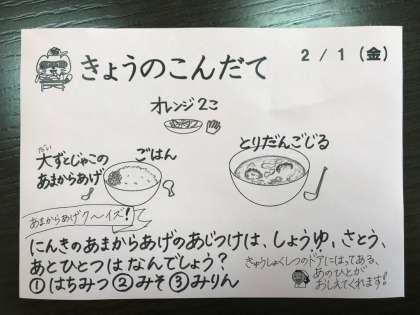 きょうのこんだて
2/1(金)
オレンジ2こ
大ずとじゃこの
だい
あまからあげ
ごはん
とりだんごじる
あまからあげク〜イズ!
にんきのあまからあげのあじつけは、しょうゆ、さとう、
あとひとつはなんでしょう?
①はちみつ②みそ③みりん
きゅうしょくしつのドアにはってある、
あのひとが
おしえてくれます!